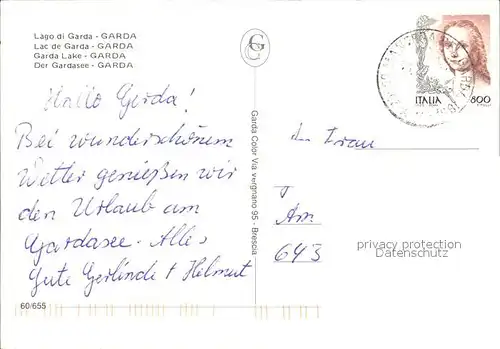 Lago di Garda - GARDA
Lac de Garda - GARDA
Garda Lake - GARDA
Der Gardasee - GARDA
Hallo Gerda!
Bei wunderschönem
Wetter genießen wir
den Urlaub am
Gardasee. Alles
Gute Gerlinde + Helmut
60/655
Garda Color Via Vergnano 95 - Brescia
ITALIA
800
Frau
Am
643
privacy protection
Datenschutz